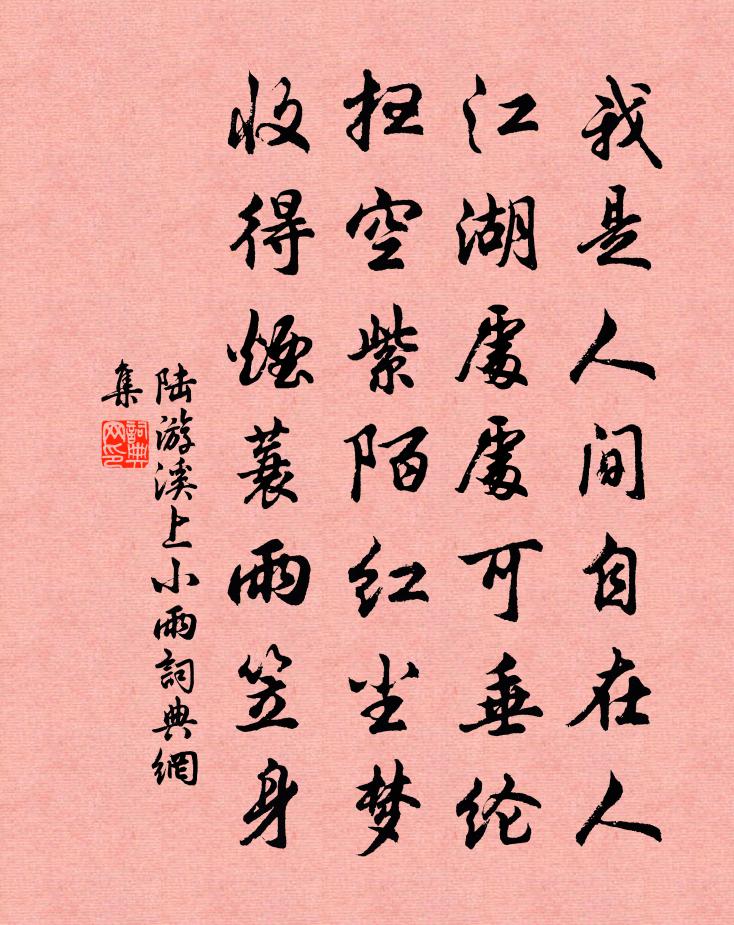 我是人间自在人
江湖處處可垂纶
扫空紫陌红尘梦
收得煙蓑雨笠身
陆游溪上小雨詞典網
集
詞典网印